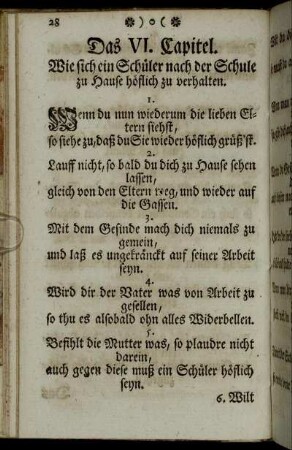 28 ❁ ) o ( ❁
Das VI. Capitel.
Wie sich ein Schüler nach der Schule
zu Hause höflich zu verhalten.
1.
Wenn du nun wiederum die lieben El-
tern siehst,
so siehe zu, daß du Sie wieder höflich grüß'st.
2.
Lauff nicht, so bald du dich zu Hause sehen
lassen,
gleich von den Eltern weg, und wieder auf
die Gassen.
3.
Mit dem Gesinde mach dich niemals zu
gemein,
und laß es ungekränckt auf seiner Arbeit
seyn.
4.
Wird dir der Vater was von Arbeit zu
gesellen,
so thu es alsobald ohn alles Widerbellen.
5.
Befihlt die Mutter was, so plaudre nicht
darein,
auch gegen diese muß ein Schüler höflich
seyn.
6. Wilt